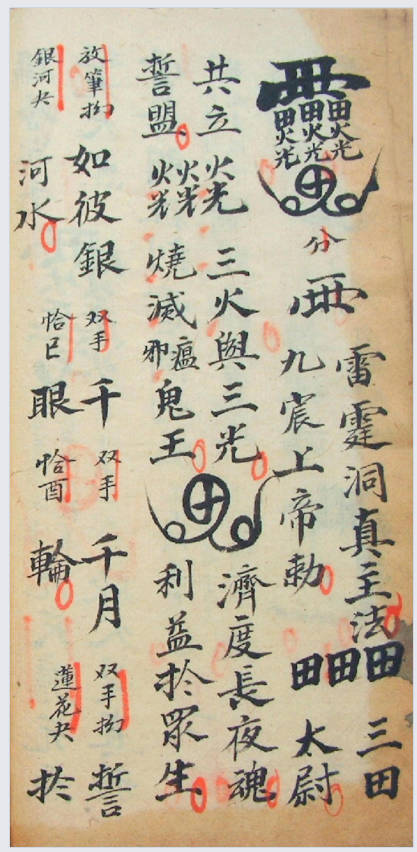 雨田火光田火光田火光田
雷霆洞真主法田田田三田
分雨九宸上帝勅太尉
共立火光火光火光三火與三光濟度長夜魂
誓盟燒滅瘟邪鬼王田利益於眾生
放筆抝如彼銀双手千双手千月双手抝誓
銀河夬河水恰巳眼恰酉輪蓮花夬於